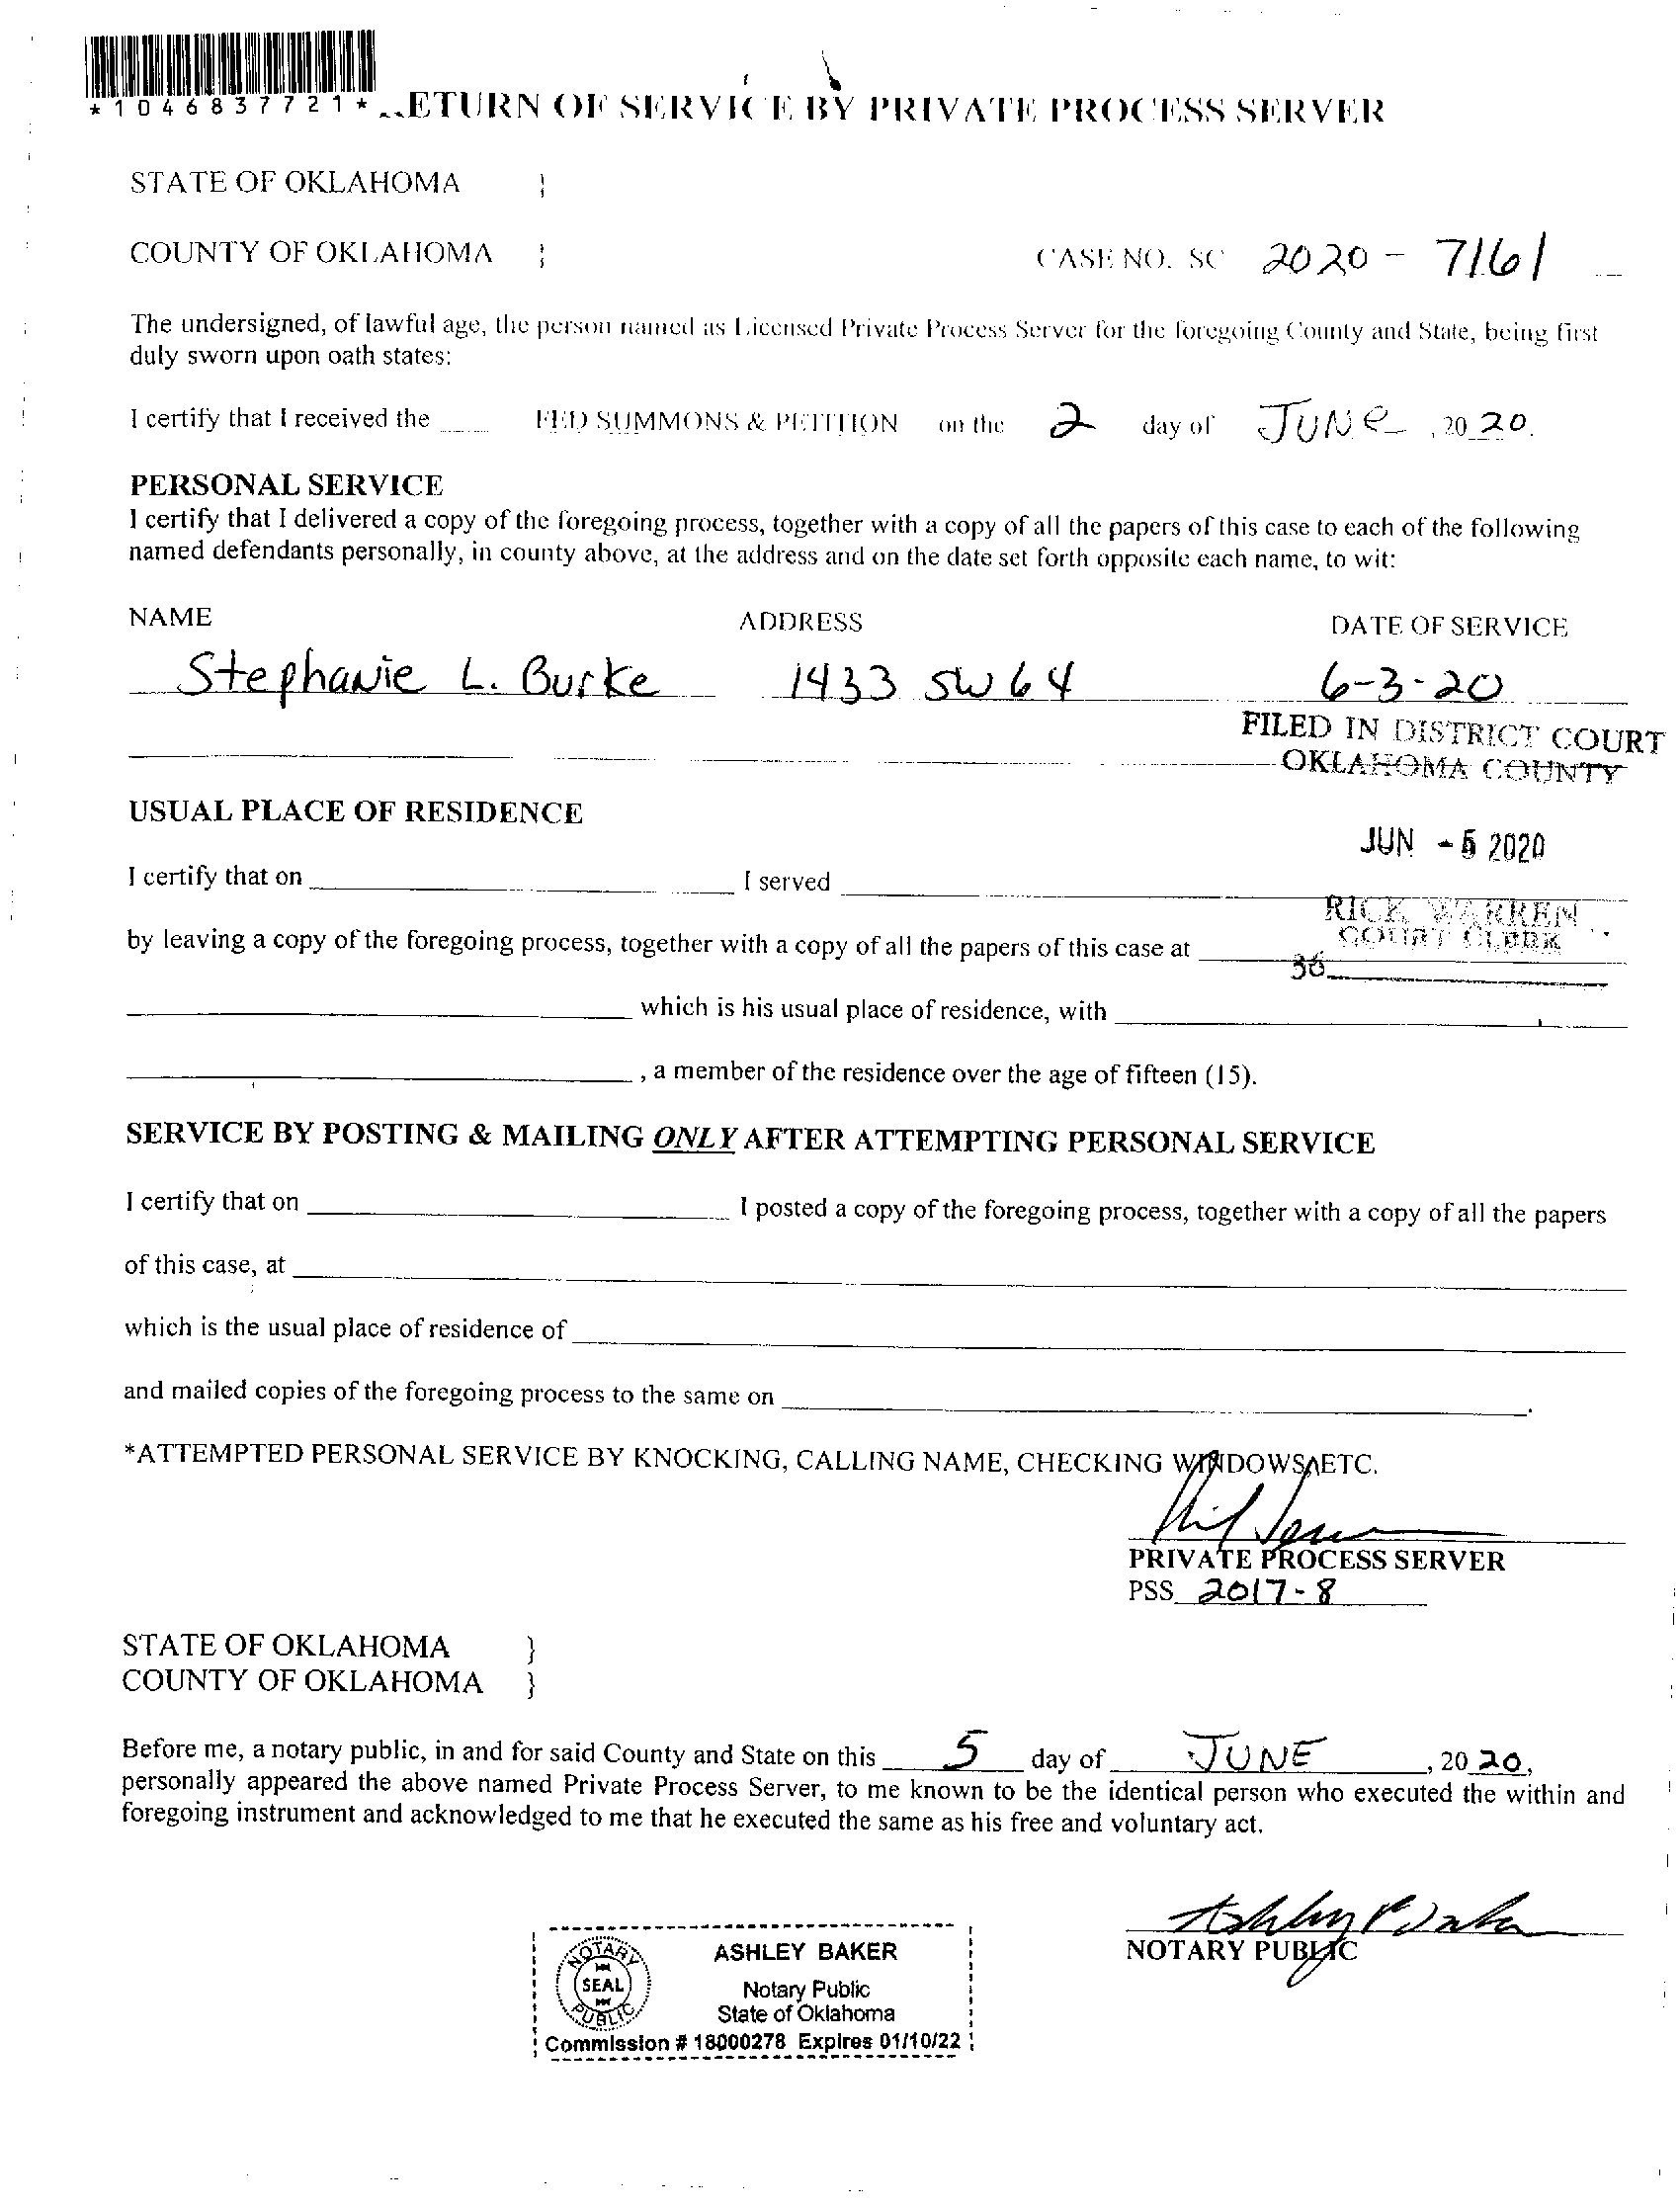 *1046837721* ETURN OF SERVICE BY PRIVATE PROCESS SERVER
STATE OF OKLAHOMA }
COUNTY OF OKLAHOMA } CASE NO. SC 2020 - 7161
The undersigned, of lawful age, the person named as Licensed Private Process Server for the foregoing County and State, being first
duly sworn upon oath states:
I certify that I received the FED SUMMONS & PETITION on the 2 day of JUNE, 2020.
PERSONAL SERVICE
I certify that I delivered a copy of the foregoing process, together with a copy of all the papers of this case to each of the following
named defendants personally, in county above, at the address and on the date set forth opposite each name, to wit:
NAME ADDRESS DATE OF SERVICE
Stephanie L. Burke 1433 SW 64 6-3-20
FILED IN DISTRICT COURT
OKLAHOMA COUNTY
USUAL PLACE OF RESIDENCE
JUN - 5 2020
I certify that on I served
RICK WARREN
COURT CLERK
by leaving a copy of the foregoing process, together with a copy of all the papers of this case at
36
which is his usual place of residence, with
, a member of the residence over the age of fifteen (15).
SERVICE BY POSTING & MAILING ONLY AFTER ATTEMPTING PERSONAL SERVICE
I certify that on I posted a copy of the foregoing process, together with a copy of all the papers
of this case, at
which is the usual place of residence of
and mailed copies of the foregoing process to the same on .
*ATTEMPTED PERSONAL SERVICE BY KNOCKING, CALLING NAME, CHECKING WINDOWS, ETC.
PRIVATE PROCESS SERVER
PSS 2017-8
STATE OF OKLAHOMA }
COUNTY OF OKLAHOMA }
Before me, a notary public, in and for said County and State on this 5 day of JUNE, 2020,
personally appeared the above named Private Process Server, to me known to be the identical person who executed the within and
foregoing instrument and acknowledged to me that he executed the same as his free and voluntary act.
NOTARY PUBLIC
NOTARY
SEAL
PUBLIC
ASHLEY BAKER
Notary Public
State of Oklahoma
Commission # 18000278 Expires 01/10/22